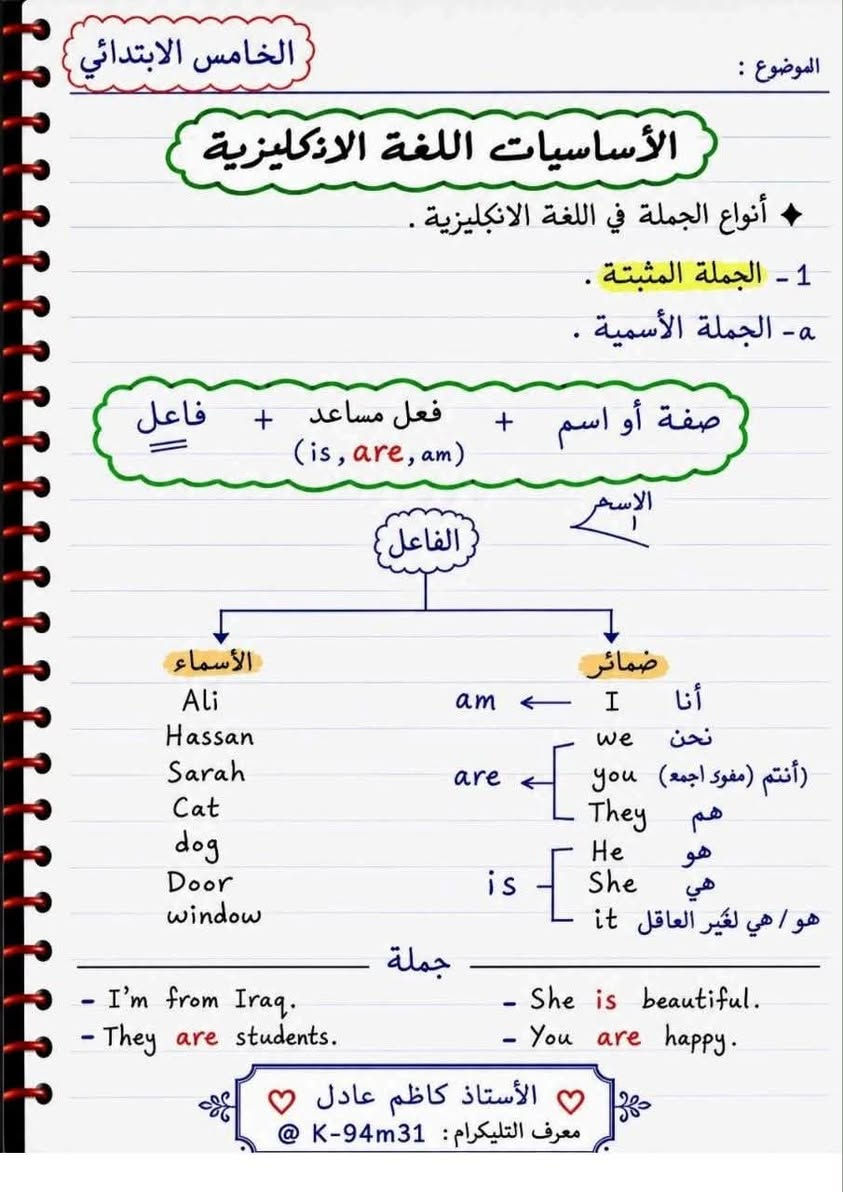 الخامس الابتدائي
الموضوع :
الأساسيات اللغة الانكليزية
✦ أنواع الجملة في اللغة الانكليزية .
1 - الجملة المثبتة .
a- الجملة الأسمية .
فاعل + فعل مساعد + صفة أو اسم
(is, are, am)
الاسم
الفاعل
الأسماء
ضمائر
Ali
Hassan
Sarah
Cat
dog
Door
window
am ← I أنا
we نحن
are ← you أنتم
They هم
He هو
is She هي
it هو / هي لغير العاقل
جملة
- I'm from Iraq.
- They are students.
- She is beautiful.
- You are happy.
♡ الأستاذ كاظم عادل ♡
معرف التليكرام : @ K-94m31